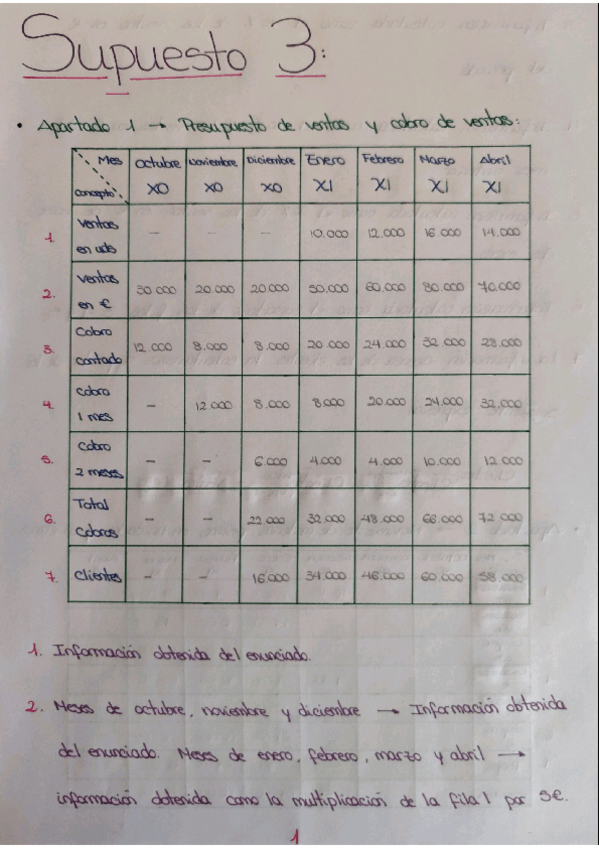 Supuesto 3:
• Apartado 1 → Presupuesto de ventas y cobro de ventas:
Mes Concepto | Octubre X0 | Noviembre X0 | Diciembre X0 | Enero X1 | Febrero X1 | Marzo X1 | Abril X1
1. Ventas en uds | - | - | - | 10.000 | 12.000 | 16.000 | 14.000
2. Ventas en € | 30.000 | 20.000 | 20.000 | 50.000 | 60.000 | 80.000 | 70.000
3. Cobro contado | 12.000 | 8.000 | 8.000 | 20.000 | 24.000 | 32.000 | 28.000
4. Cobro 1 mes | - | 12.000 | 8.000 | 8.000 | 20.000 | 24.000 | 32.000
5. Cobro 2 meses | - | - | 6.000 | 4.000 | 4.000 | 10.000 | 12.000
6. Total Cobros | - | - | 22.000 | 32.000 | 48.000 | 66.000 | 72.000
7. Clientes | - | - | 16.000 | 34.000 | 46.000 | 60.000 | 58.000
1. Información obtenida del enunciado.
2. Meses de octubre, noviembre y diciembre → Información obtenida
del enunciado. Meses de enero, febrero, marzo y abril →
información obtenida como la multiplicación de la fila 1 por 5€.
1